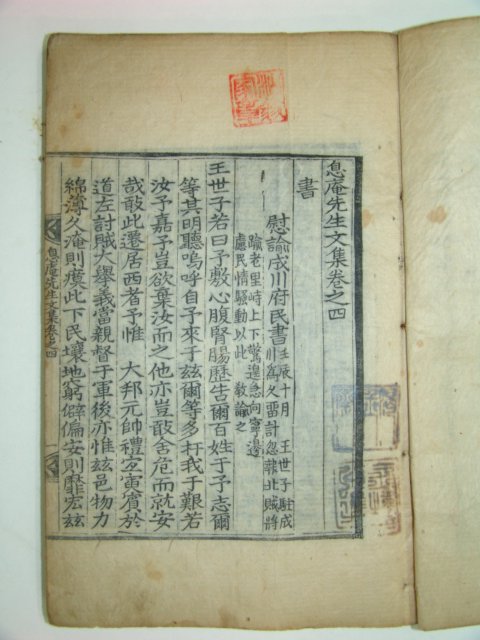 息庵先生文集卷之四
書
慰諭成川府民書
壬辰十月 王世子駐成
川爲久留計忽報北賊將
踰老里峙上下驚遑急向寧邊
慮民情騷動以此敎諭之
王世子若曰予敷心腹腎腸歷告爾百姓于予志爾
等其明聽嗚呼自予來子玆爾等多扞我于艱若
汝予嘉予豈欲棄汝而之他亦豈敢舍危而就安
哉敢此遷居西者予惟 大邦元帥禮宜寅賓於
道左討賊大擧義當親督于軍後亦惟玆邑物力
綿薄久淹則瘼此下民壤地窮僻偏安則靡宏玆
息庵先生文集卷之四